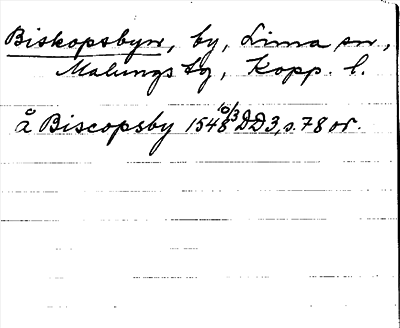 Biskopsbyn, by, Lima sn,
Malungs tg, Kopp. l.
å Biscopsby 1548 10/3 DD3, s. 78 or.